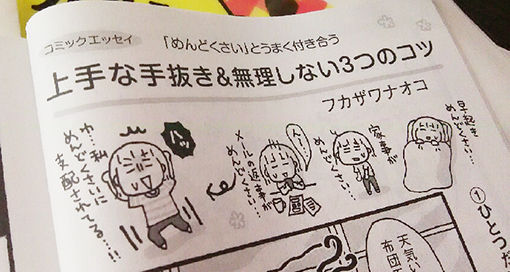 コミックエッセイ
「めんどくさい」とうまく付き合う
上手な手抜き&無理しない3つのコツ
フカザワナオコ
早起き
めんどくさい…
家事が
めんどくさい…
んー
メールの返事が
めんどくさい…
ハッ
わ…私
めんどくさいに
支配されてる…!!
①ひとつだ
天気い
布団